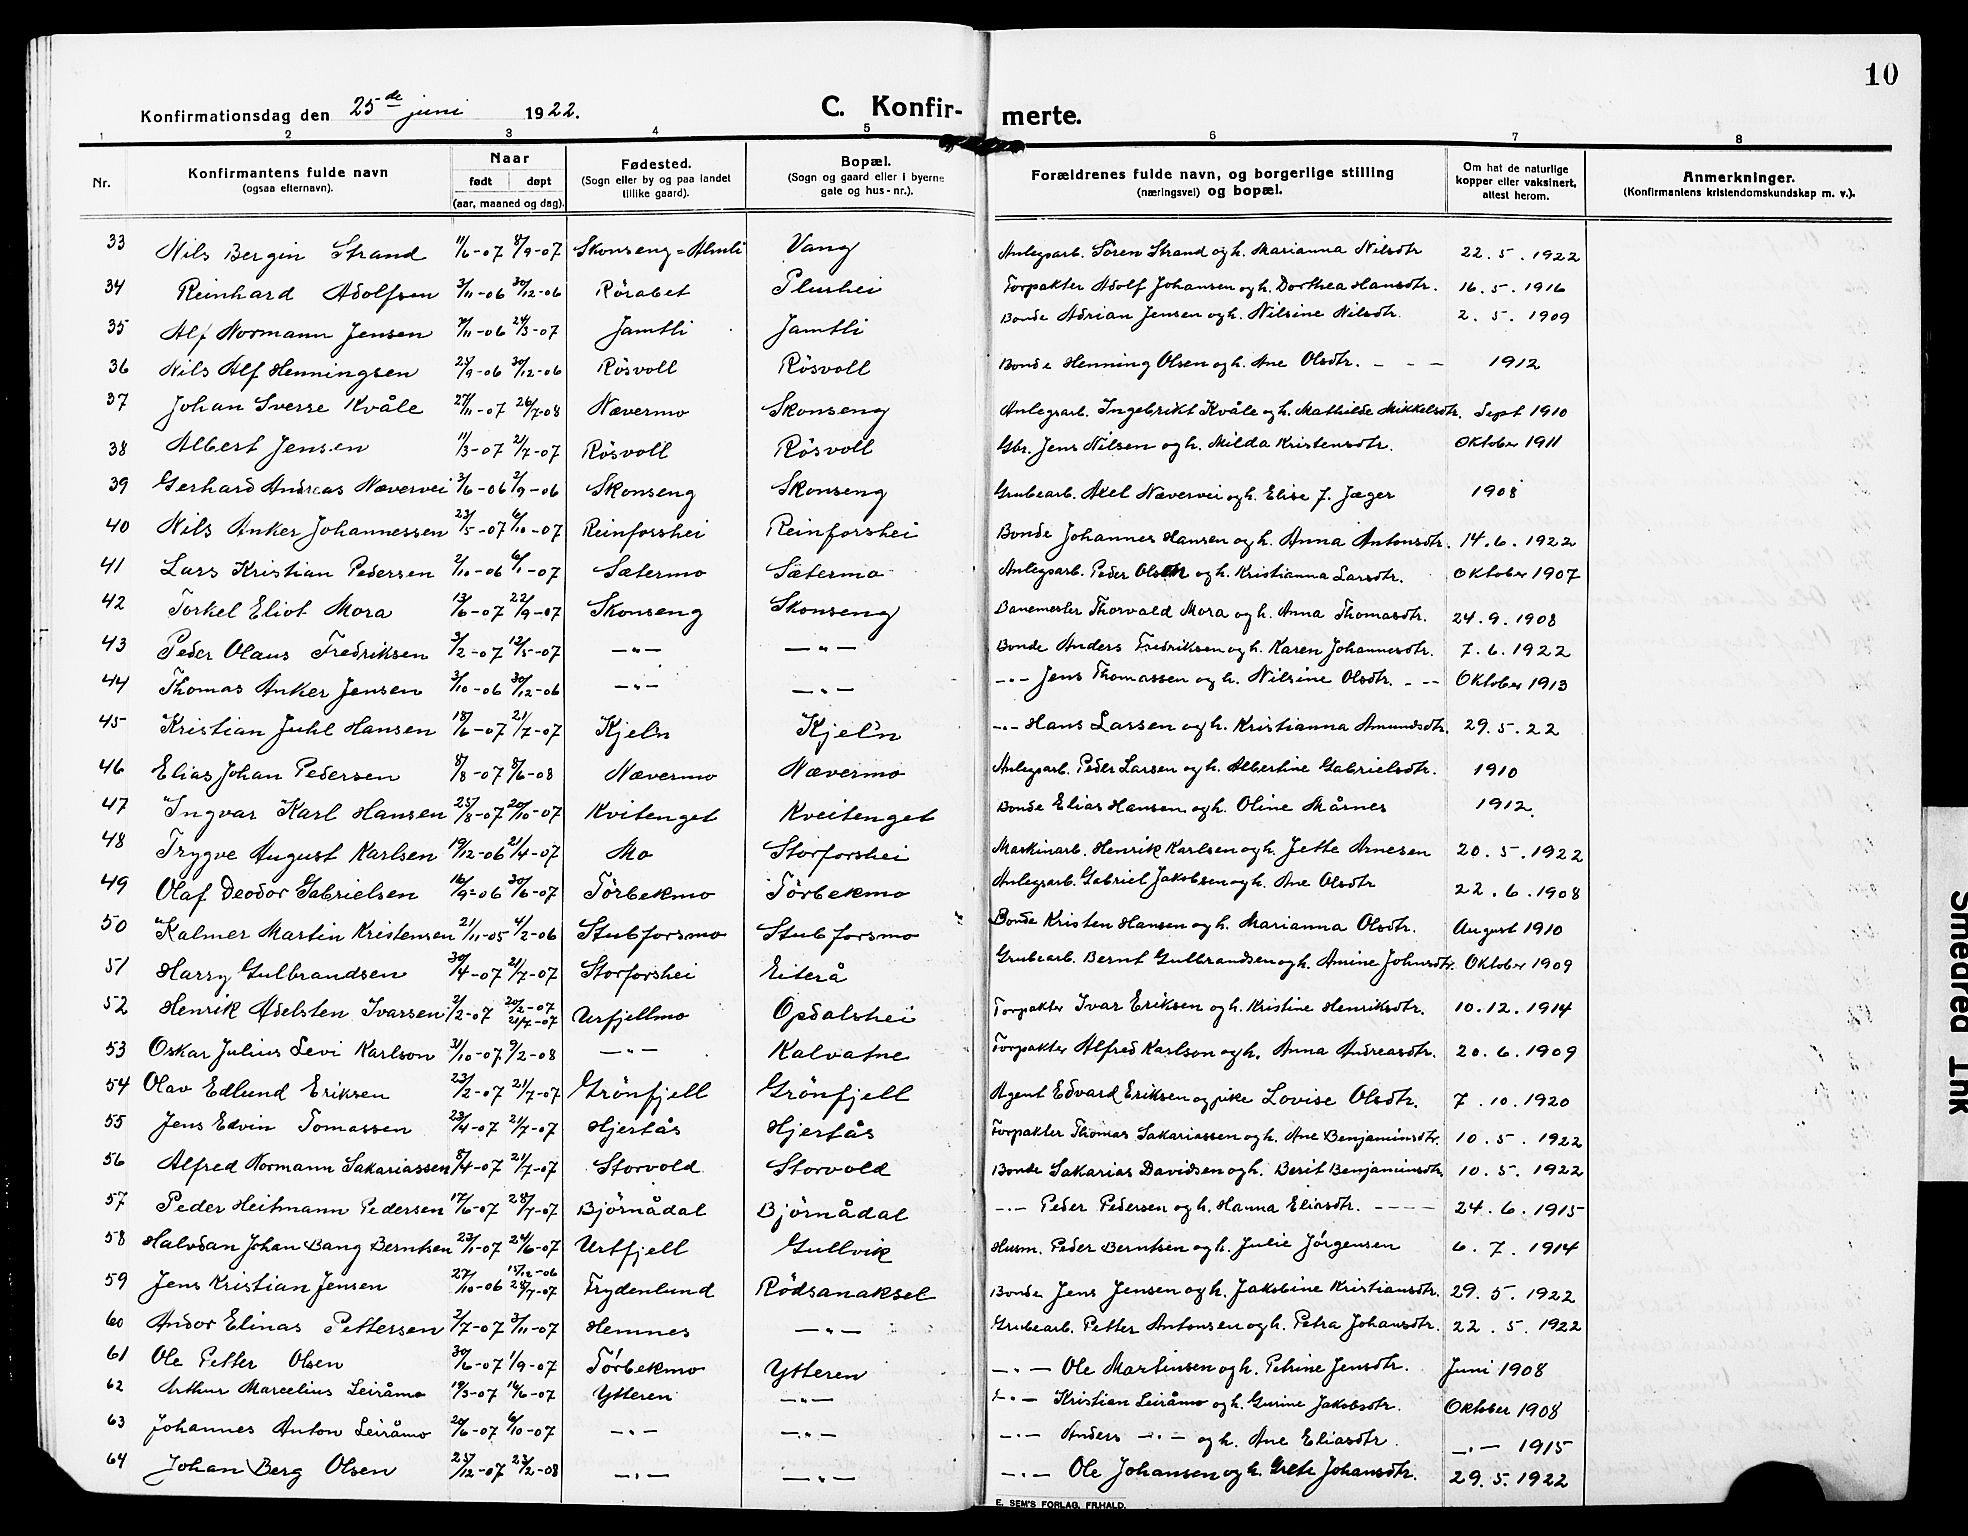 10
Konfirmationsdag den 25de juni 1922.
C. Konfir- merte.
1 2 3 4 5 6 7 8
Nr. Konfirmantens fulde navn (ogsaa efternavn). Naar født døpt (aar, maaned og dag). Fødested. (Sogn eller by og paa landet tillike gaard). Bopæl. (Sogn og gaard eller i byerne gate og hus-nr.). Forældrenes fulde navn, og borgerlige stilling (næringsvei) og bopæl. Om hat de naturlige kopper eller vaksinert, attest herom. Anmerkninger. (Konfirmantens kristendomskundskap m. v.).
33 Nils Bergin Strand 11/6-07 8/9-07 Skonseng=Almli Vang Anlegsarb. Sören Strand og h. Marianna Nilsdtr 22.5.1922
34 Reinhard Adolfsen 3/11-06 30/12-06 Rörabet Plurhei Forpakter Adolf Johansen og h. Dorthea Hansdtr. 16.5.1916
35 Alf Normann Jensen 7/11-06 24/3-07 Jamtli Jamtli Bonde Adrian Jensen og h. Nilsine Nilsdtr. 2.5.1909
36 Nils Alf Henningsen 25/9-06 30/12-06 Rösvoll Rösvoll Bonde Henning Olsen og h. Ane Olsdtr. - - - 1912
37 Johan Sverre Kvåle 27/11-07 26/7-08 Nævermo Skonseng Anlegsarb. Ingebrikt Kvåle og h. Mathilde Mikkelsdtr. Sept 1910
38 Albert Jensen 11/3-07 21/7-07 Rösvoll Rösvoll Gbr. Jens Nilsen og h. Milda Kristensdtr. Oktober 1911
39 Gerhard Andreas Nævervei 3/6-06 2/9-06 Skonseng Skonseng Grubearb. Axel Nævervei og h. Elise J. Jæger 1908
40 Nils Anker Johannessen 23/5-07 6/10-07 Reinforshei Reinforshei Bonde Johannes Hansen og h. Anna Antonsdtr. 14.6.1922
41 Lars Kristian Pedersen 2/10-06 6/1-07 Sætermo Sætermo Anlegsarb. Peder Olsen og h. Kristianna Larsdtr. Oktober 1907
42 Torkel Eliot Mora 13/6-07 22/9-07 Skonseng Skonseng Banemester Thorvald Mora og h. Anna Thomasdtr. 24.9.1908
43 Peder Olaus Fredriksen 3/2-07 12/5-07 -"- -"- Bonde Anders Fredriksen og h. Karen Johannesdtr. 7.6.1922
44 Thomas Anker Jensen 3/10-06 30/12-06 -"- -"- -"- Jens Thomassen og h. Nilsine Olsdtr. - - Oktober 1913
45 Kristian Juhl Hansen 18/6-07 21/7-07 Kjel'n Kjel'n -"- Hans Larsen og h. Kristianna Amundsdtr. 29.5.22
46 Elias Johan Pedersen 8/8-07 8/6-08 Nævermo Nævermo Anlegsarb. Peder Larsen og h. Albertine Gabrielsdtr. 1910
47 Ingvar Karl Hansen 25/8-07 20/10-07 Kvitenget Kveitenget Bonde Elias Hansen og h. Oline Mårnes 1912.
48 Trygve August Karlsen 19/12-06 21/4-07 Mo Storforshei Maskinarb. Henrik Karlsen og h. Jette Arnesen 20.5.1922
49 Olaf Deodor Gabrielsen 16/9-06 30/6-07 Törbekmo Törbekmo Anlegsarb. Gabriel Jakobsen og h. Ane Olsdtr 22.6.1908
50 Kalmer Martin Kristensen 21/11-05 4/2-06 Stubforsmo Stubforsmo Bonde Kristen Hansen og h. Marianna Olsdtr. August 1910
51 Harry Gulbrandsen 30/4-07 21/7-07 Storforshei Eiterå Grubearb. Bernt Gulbrandsen og h. Amine Johnsdtr. Oktober 1909
52 Henrik Adelsten Ivarsen 2/2-07 20/2-07 21/7-07 Urfjellmo Opdalshei Forpakter Ivar Eriksen og h. Kristine Henriksdtr. 10.12.1914
53 Oskar Julius Levi Karlson 31/10-07 9/2-08 -"- Kalvatne Forpakter Alfred Karlson og h. Anna Andreasdtr. 20.6.1909
54 Olav Edlund Eriksen 23/2-07 21/7-07 Grönfjell Grönfjell Agent Edvard Eriksen og pike Lovise Olsdtr. 7.10.1920
55 Jens Edvin Tomassen 23/4-07 21/7-07 Hjertås Hjertås Forpakter Thomas Sakariassen og h. Ane Benjaminsdtr. 10.5.1922
56 Alfred Normann Sakariassen 8/4-07 21/7-07 Storvold Storvold Bonde Sakarias Davidsen og h. Berit Benjaminsdtr. 10.5.1922
57 Peder Heitmann Pedersen 17/6-07 28/7-07 Björnådal Björnådal -"- Peder Pedersen og h. Hanna Eliasdtr. - - - - 24.6.1915
58 Halvdan Johan Bang Berntsen 23/1-07 24/6-07 Urtfjell Gullvik Husm. Peder Berntsen og h. Julie Jörgensen 6.7.1914
59 Jens Kristian Jensen 27/10-06 15/12-06 28/7-07 Frydenlund Rödsanaksel Bonde Jens Jensen og h. Jakobine Kristiansdtr. 29.5.1922
60 Andor Elinas Pettersen 2/7-07 3/11-07 Hemnes -"- Grubearb. Petter Antonsen og h. Petra Johansdtr. 22.5.1922
61 Ole Petter Olsen 30/6-07 1/9-07 Törbekmo Ytteren -"- Ole Martinsen og h. Petrine Jensdtr. Juni 1908
62 Arthur Marcelius Leiråmo 19/3-07 16/6-07 Ytteren -"- -"- Kristian Leiråmo og h. Gurine Jakobsdtr. Oktober 1908
63 Johannes Anton Leiråmo 20/6-07 6/10-07 -"- -"- -"- Anders -"- og h. Ane Eliasdtr. -"- 1915
64 Johan Berg Olsen 25/12-07 23/2-08 -"- -"- -"- Ole Johansen og h. Grete Johansdtr. 29.5.1922
E. SEM'S FORLAG, FR.HALD.
Smeared Ink